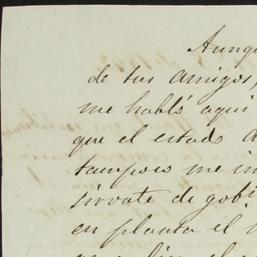 Aunq
de tus amigos,
me habló aqui
que el estado
tampoco me in
sirvate de gobi
en planta el